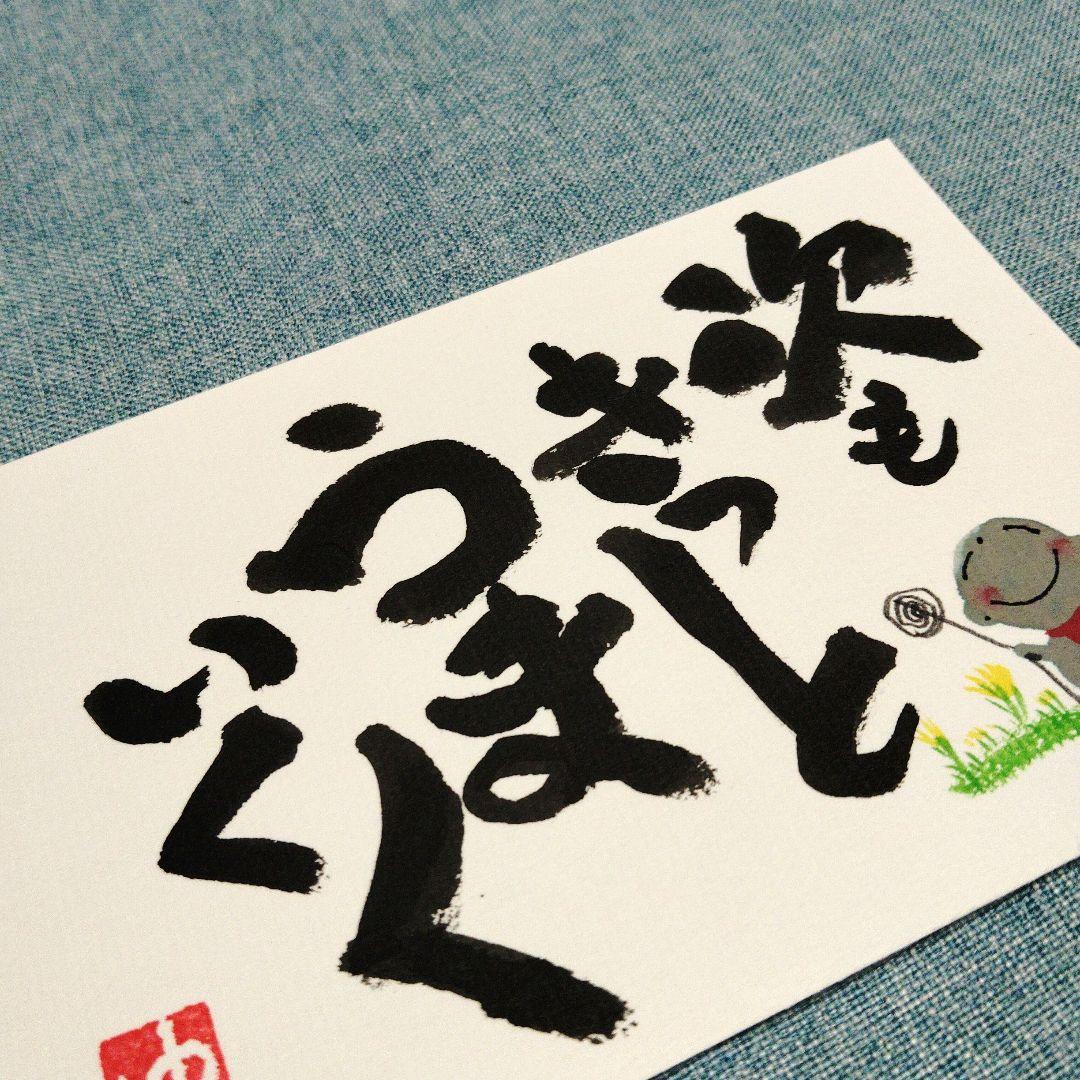 次も
きっと
うまく
いく